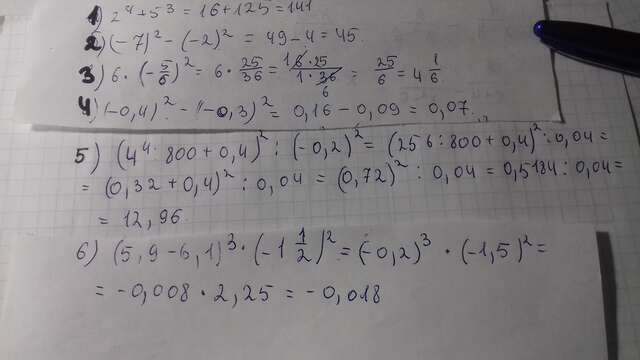 1) 2⁴+5³ = 16+125=141
2) (-7)² - (-2)² = 49-4=45.
3) 6 · (-5/6)² = 6 · 25/36 = 16·25/1·36 6 = 25/6 = 4 1/6.
4) (-0,4)² - (-0,3)² = 0,16-0,09=0,07.
5) (4⁴:800+0,4)² : (-0,2)² = (256:800+0,4)²:0,04=
= (0,32+0,4)² : 0,04 = (0,72)² : 0,04=0,5184:0,04=
= 12,96.
6) (5,9-6,1)³ · (-1 1/2)² = (-0,2)³ · (-1,5)² =
= -0,008 · 2,25 = -0,018